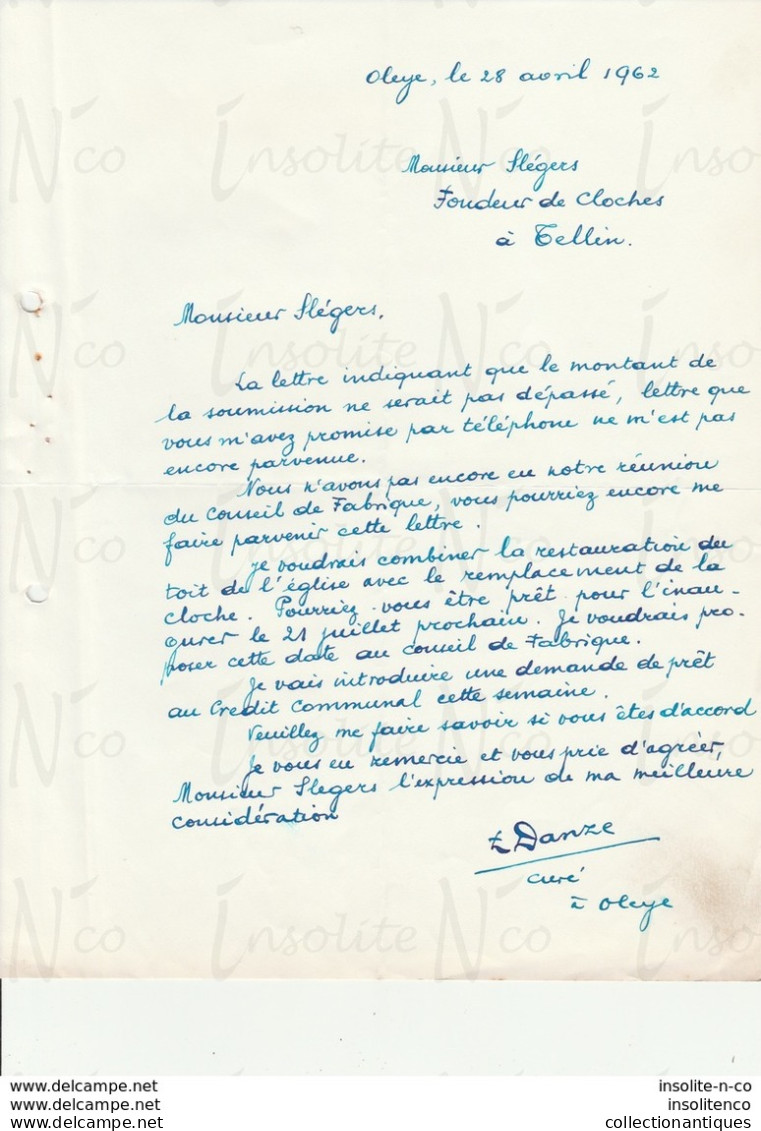 Oleye, le 28 avril 1962
Monsieur Slégers
Fondeur de Cloches
à Tellin.
Monsieur Slégers,
La lettre indiquant que le montant de
la soumission ne serait pas dépassé, lettre que
vous m'avez promise par téléphone ne m'est pas
encore parvenue.
Nous n'avons pas encore eu notre réunion
du Conseil de Fabrique, vous pourriez encore me
faire parvenir cette lettre.
Je voudrais combiner la restauration du
toit de l'église avec le remplacement de la
cloche. Pourriez-vous être prêt pour l'inau-
gurer le 21 juillet prochain. Je voudrais pro-
poser cette date au conseil de Fabrique.
Je vais introduire une demande de prêt
au Crédit Communal cette semaine.
Veuillez me faire savoir si vous êtes d'accord
Je vous en remercie et vous prie d'agréer,
Monsieur Slegers l'expression de ma meilleure
considération
Danze
curé
à Oleye
Insolite N'co
www.delcampe.net
www.delcampe.be
www.delcampe.net
insolite-n-co
insolitenco
collectionantiques